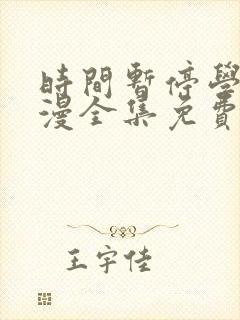 時間暫停學
漫全集免費
王宇佳